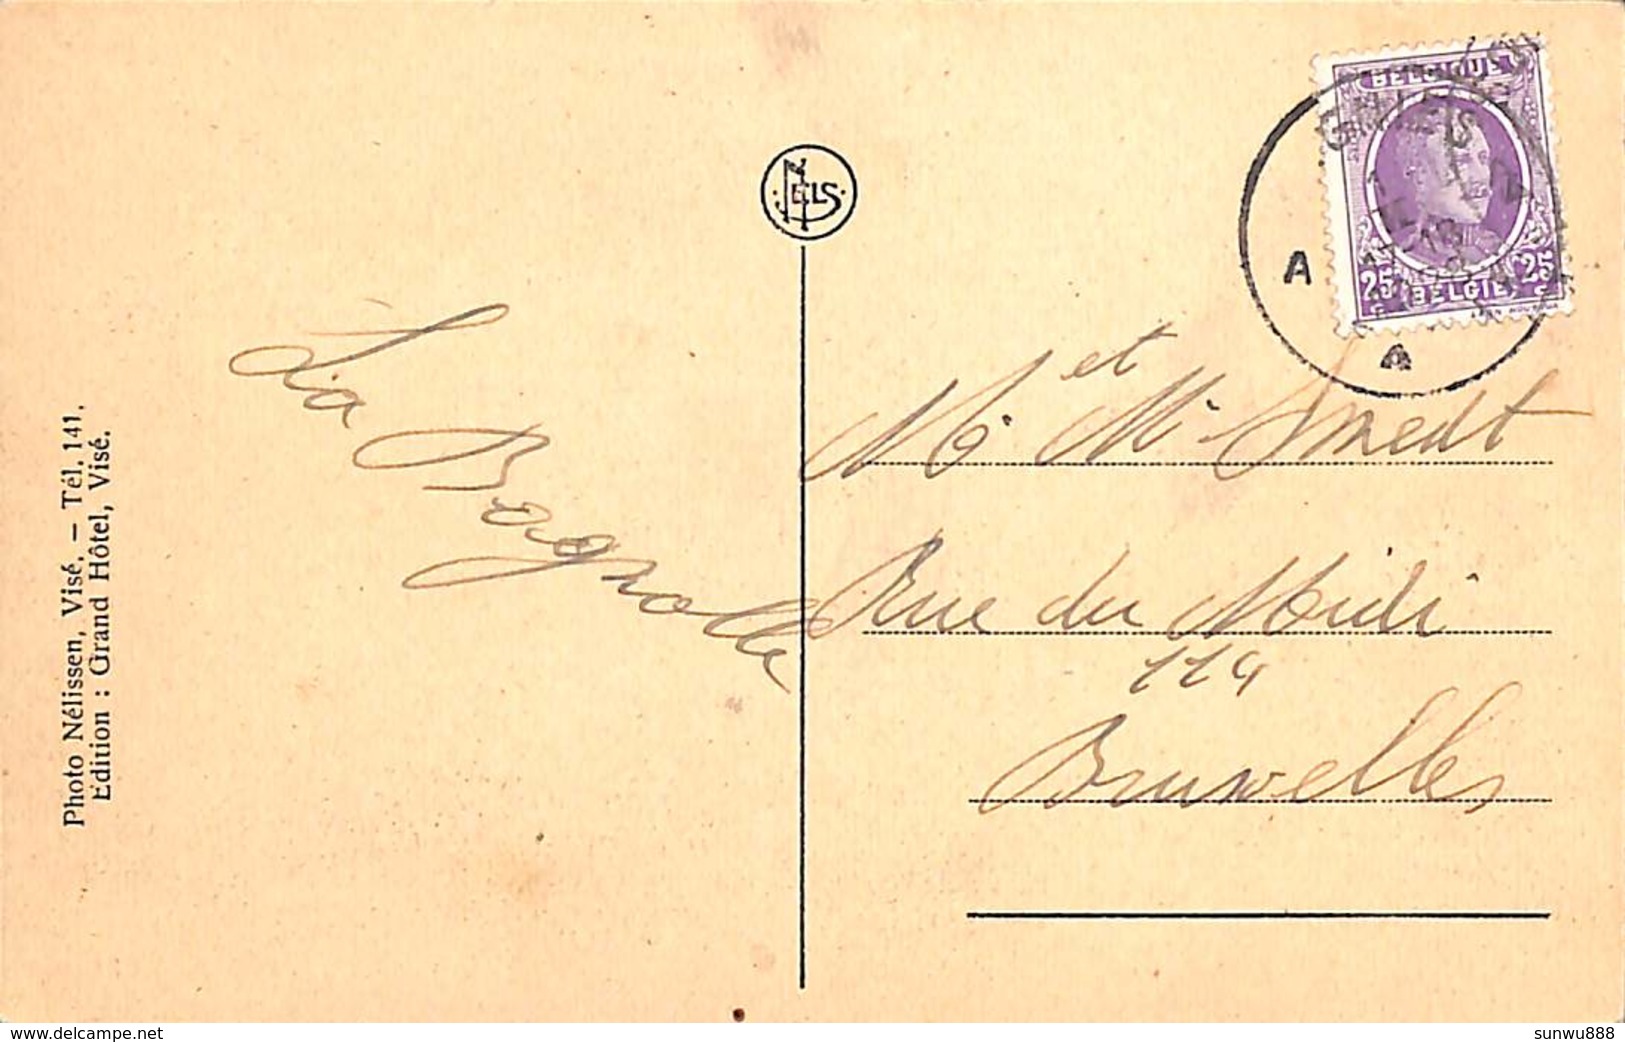 Photo Nélissen, Visé. — Tél. 141.
Edition : Grand Hôtel, Visé.
La
Bagnolle
NELS
BELGIQUE
25 BELGIË 25
A
A
Mr et Me Smedt
Rue du Midi
114
Bruxelles
www.delcampe.net
sunwu888